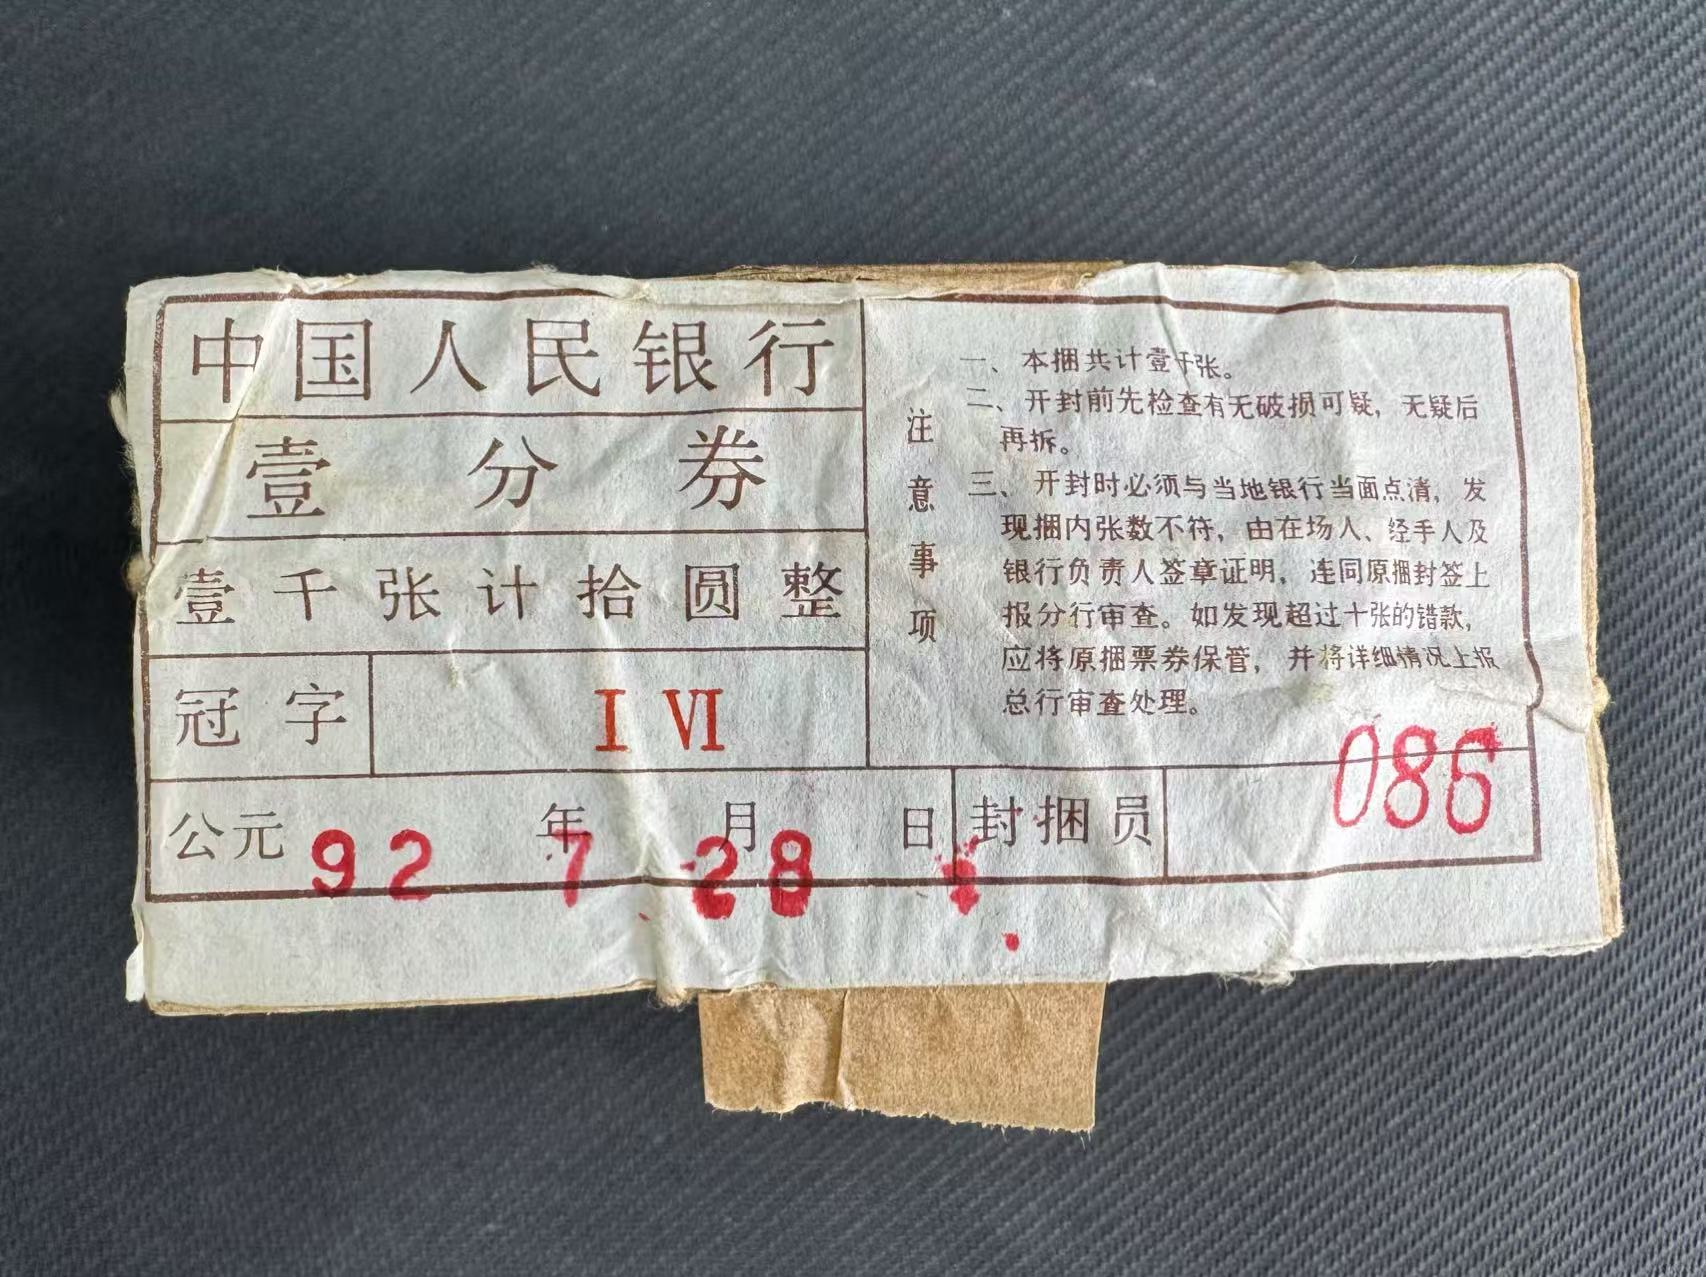 中国人民银行
壹分券
壹千张计拾圆整
冠字 I VI
公元 年 月 日
92 7 28
封捆员
086
注意事项
一、本捆共计壹千张。
二、开封前先检查有无破损可疑，无疑后
再拆。
三、开封时必须与当地银行当面点清，发
现捆内张数不符，由在场人、经手人及
银行负责人签章证明，连同原捆封签上
报分行审查。如发现超过十张的错款，
应将原捆票券保管，并将详细情况上报
总行审查处理。